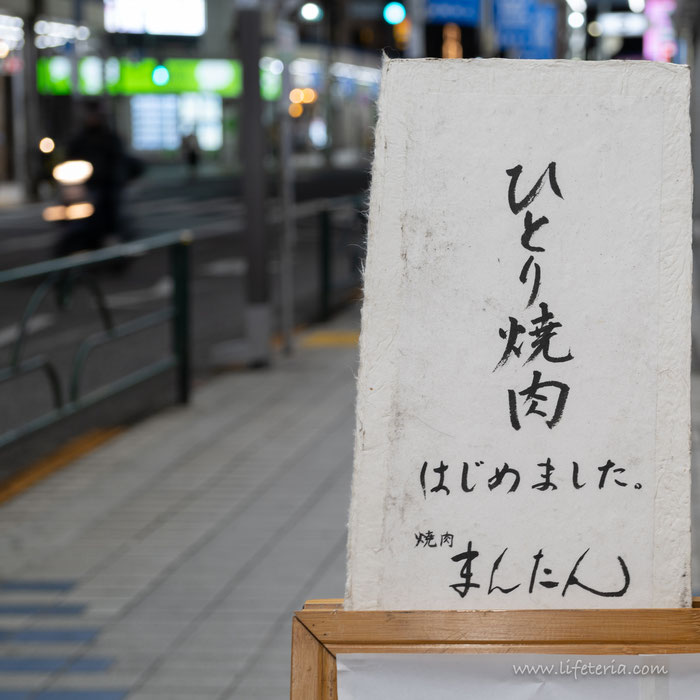 ひとり焼肉
はじめました。
焼肉
まんたん
www.lifeteria.com